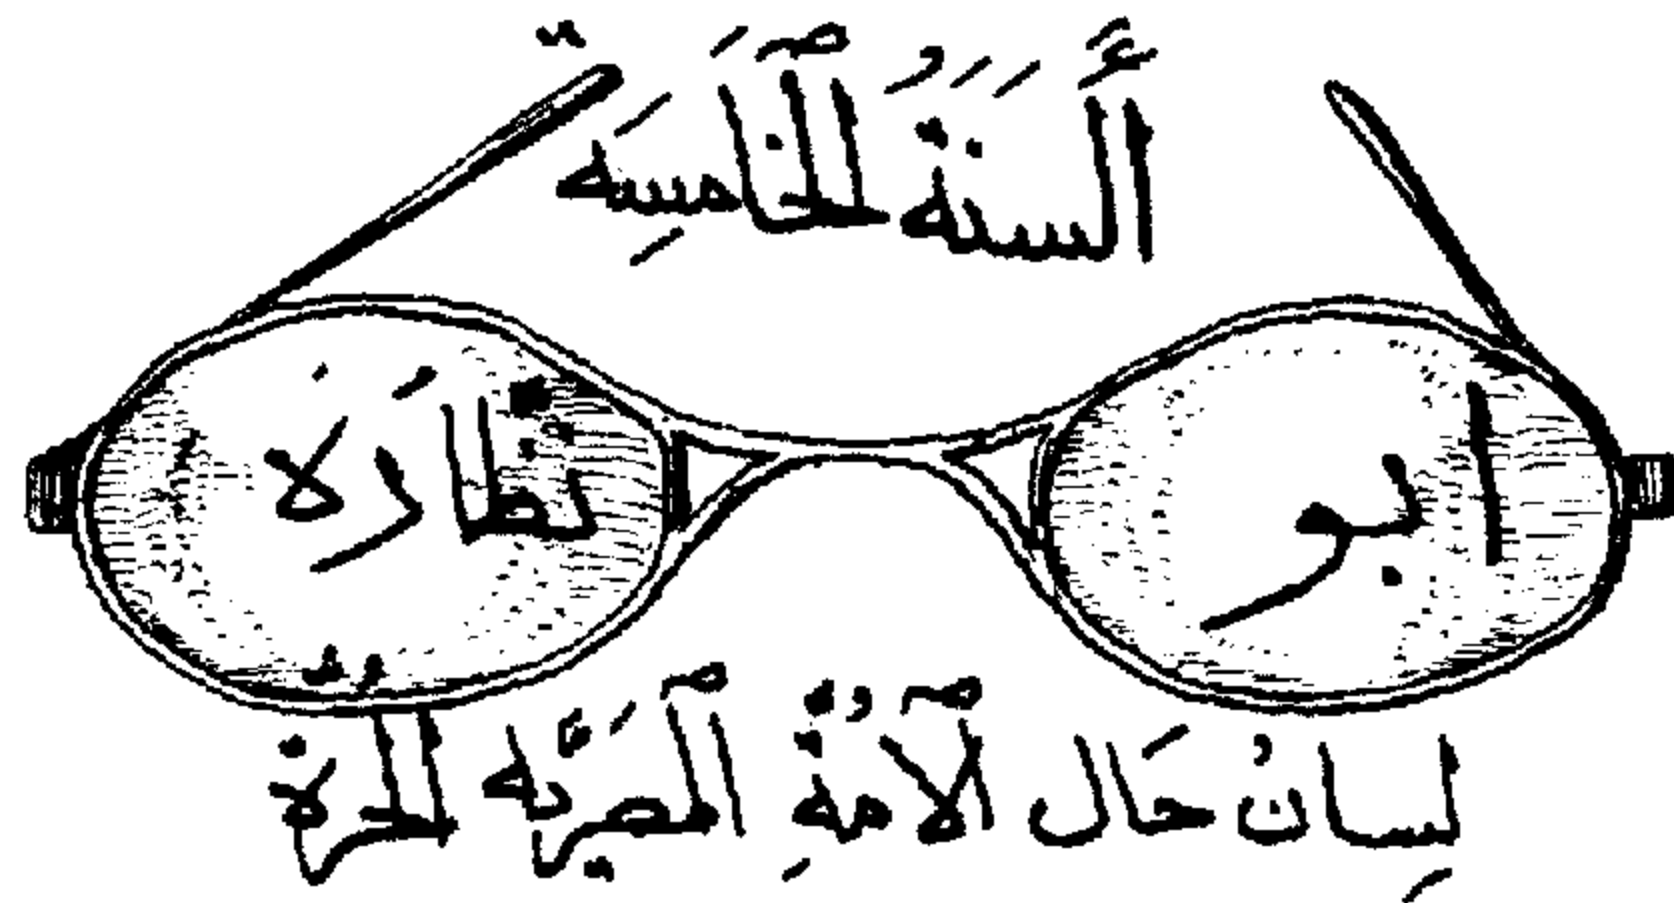 أَلسَنَةُ ٱلخَامَسِة
ابو نظارَة
لِسانُ حَال ٱلاُمةِ ٱلمصرِيَّة ٱلحُرة